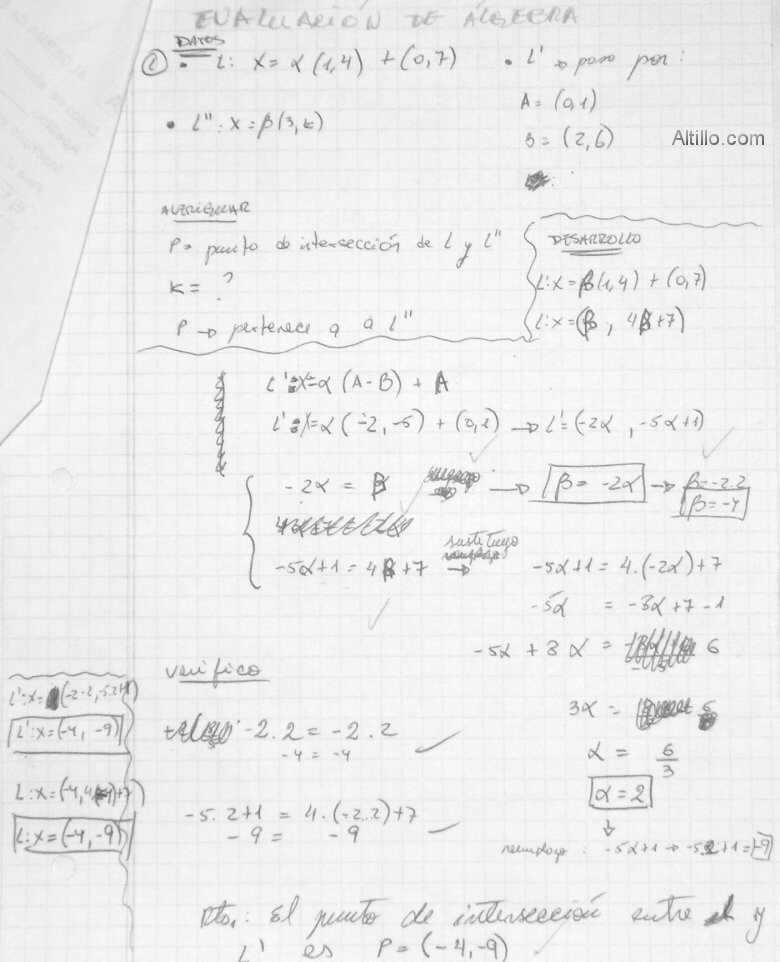 EVALUACIÓN DE ÁLGEBRA
DATOS
• L: X = α (1,4) + (0,7)
• L' → pasa por:
A = (0,1)
• L'': X = β(3,k)
B = (2,6)
Altillo.com
AVERIGUAR
P = punto de intersección de L y L''
k = ?
P → pertenece a a L''
DESARROLLO
L: X = β(1,4) + (0,7)
L: X = (β, 4β+7)
L': X = α (A-B) + A
L': X = α (-2, -5) + (0,1) → L' = (-2α, -5α+1)
-2α = β → β = -2α → β = -2.2
β = -4
-5α+1 = 4β+7 sustituyo → -5α+1 = 4.(-2α)+7
-5α = -8α+7-1
-5α + 8α = 6
3α = 6
α = 6/3
α = 2
reemplazo: -5α+1 → -5.2+1 = -9
verifico
-2.2 = -2.2
-4 = -4
-5.2+1 = 4.(-2.2)+7
-9 = -9
L': X = (-2.2, -5.2+1)
L': X = (-4, -9)
L: X = (-4, 4(-4)+7)
L: X = (-4, -9)
Rta.: El punto de intersección entre L y
L' es P = (-4,-9)